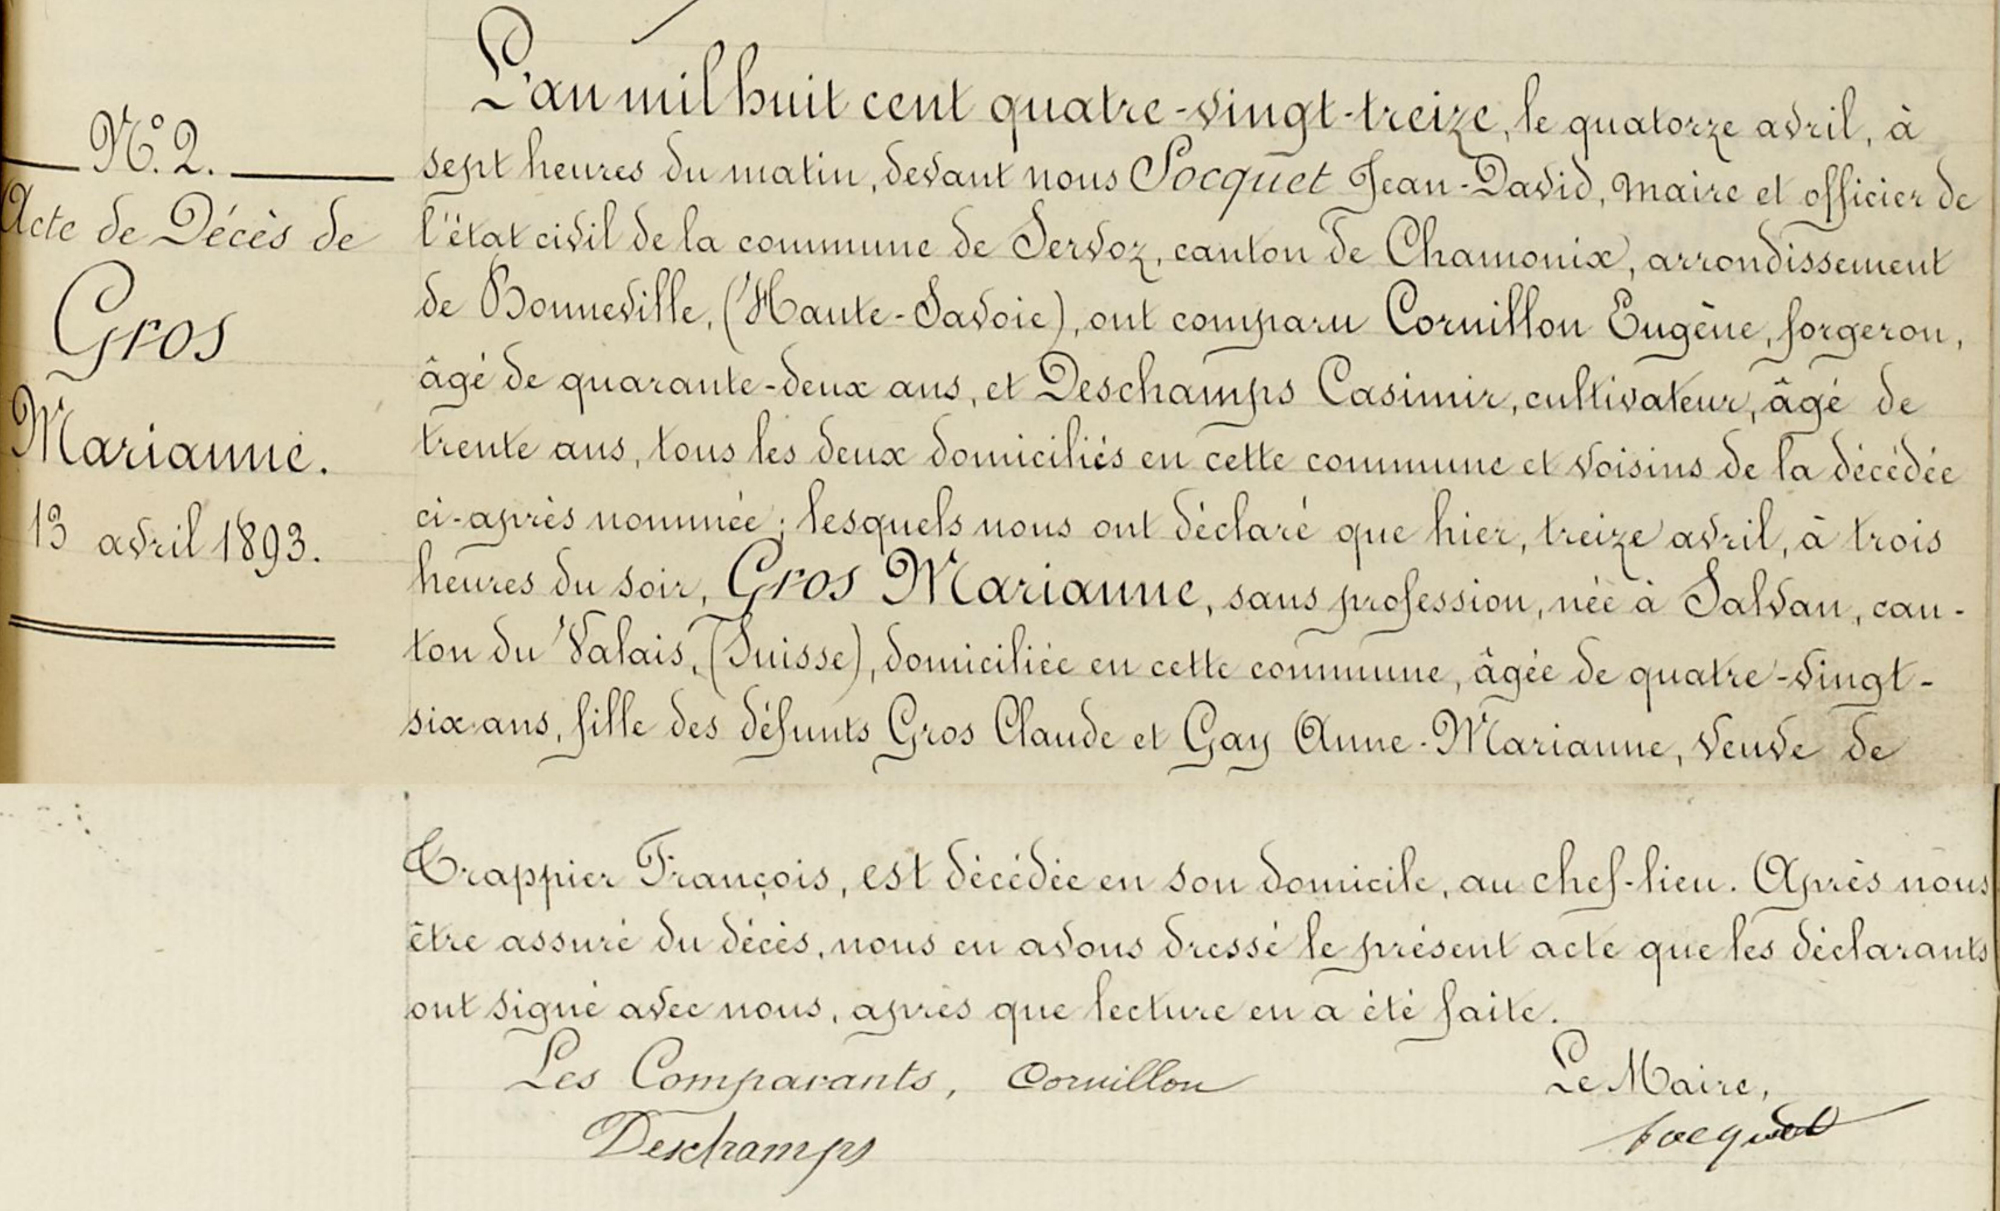 N.° 2.
Acte de Décès de
Gros
Marianne.
13 avril 1893.
L'an mil huit cent quatre-vingt-treize, le quatorze avril, à
sept heures du matin, devant nous Socquet Jean-David, maire et officier de
l'état civil de la commune de Servoz, canton de Chamonix, arrondissement
de Bonneville, (Haute-Savoie), ont comparu Cornillon Eugène, forgeron,
âgé de quarante-deux ans, et Deschamps Casimir, cultivateur, âgé de
trente ans, tous les deux domiciliés en cette commune et voisins de la décédée
ci-après nommée; lesquels nous ont déclaré que hier, treize avril, à trois
heures du soir, Gros Marianne, sans profession, née à Salvan, can-
ton du Valais, (Suisse), domiciliée en cette commune, âgée de quatre-vingt-
six ans, fille des défunts Gros Claude et Gay Anne-Marianne, veuve de
Trappier François, est décédée en son domicile, au chef-lieu. Après nous
être assuré du décès, nous en avons dressé le présent acte que les déclarants
ont signé avec nous, après que lecture en a été faite.
Les Comparants, Cornillon
Le Maire,
Deschamps
Socquet